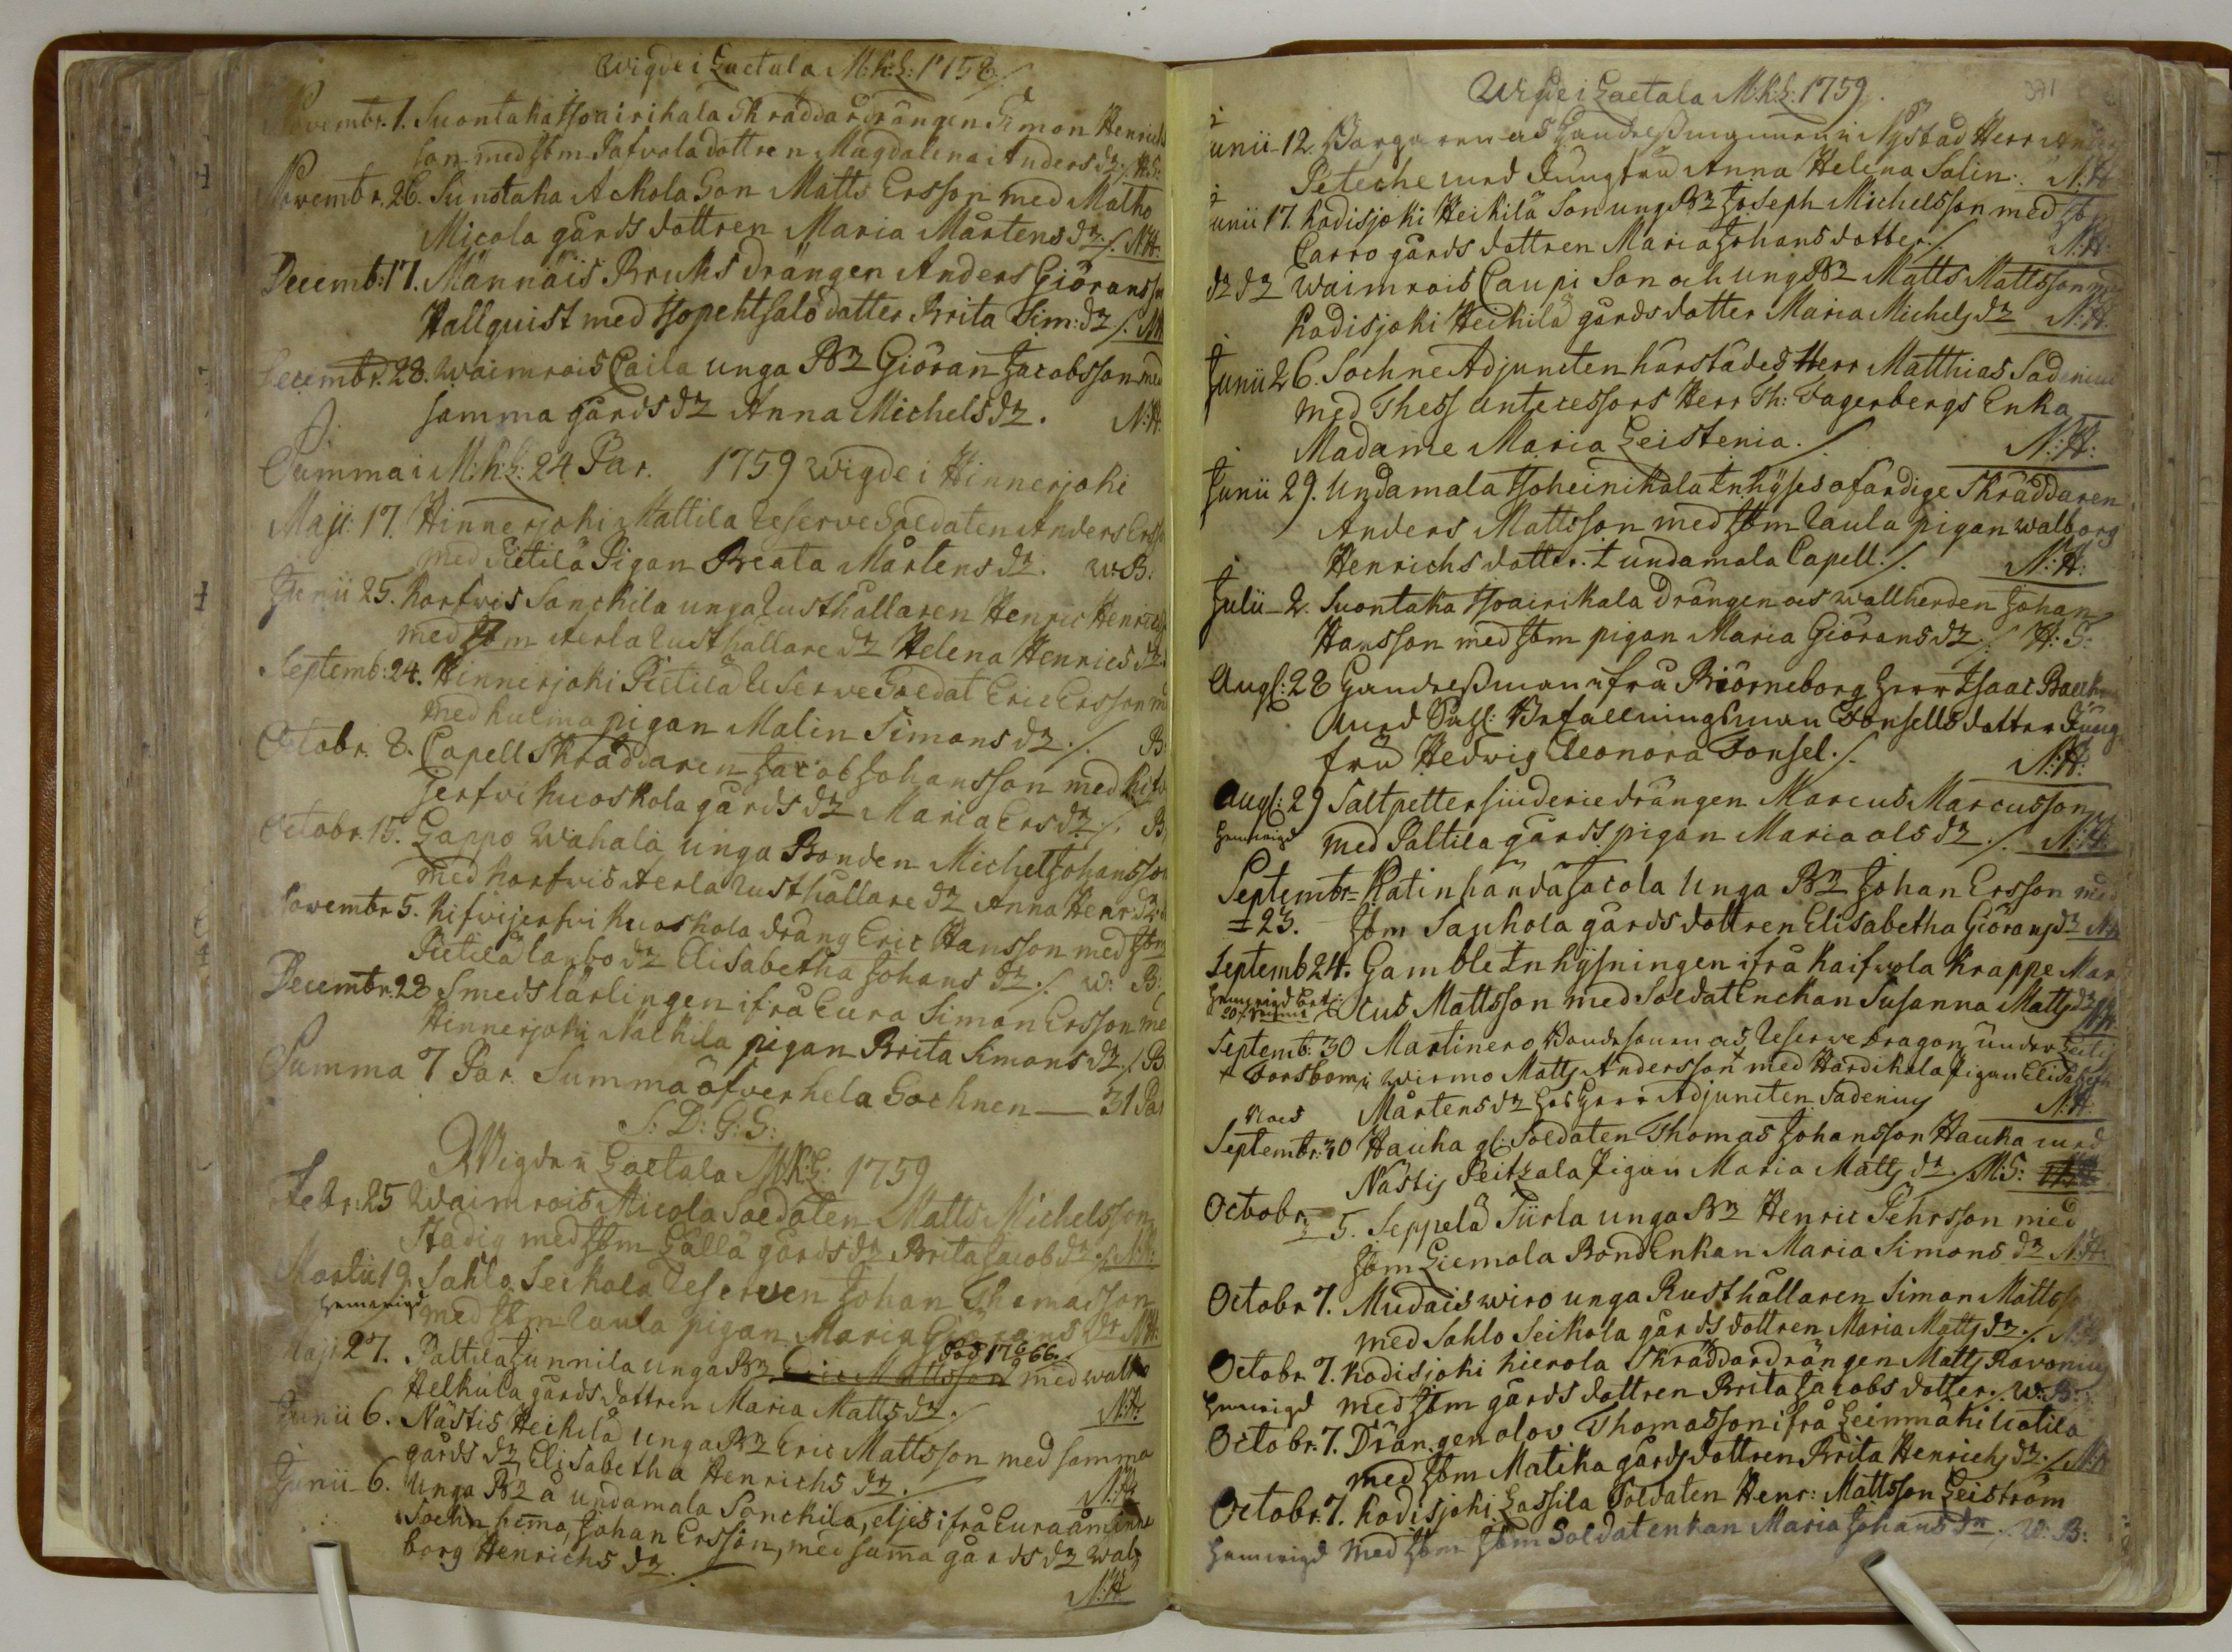 Wigde i Laetala M:k:L: 1758 /.
Novembr. 1. Suontaka Isoairikala Skräddardrängen Simon Henrics
son med sbm Pafvola dottren Magdalina Anders dr /. H:S:
Novembr. 26. Sunstaka Ackola Son Matts Ersson med Matho
Micola gårds dottren Maria Mårtens dr /. N:H:
Decemb: 17. Männäis Bruks drängen Anders Giöransson
Hallquist med Isopehtsalo datter Brita Sim: dr /. NH
Decembr. 28. Waimrois Caila unga B2 Giöran Jacobsson med
samma gårds dr Anna Michels dr. N:H:
Summa i M:k:L: 24 Par. 1759 wigde i Hinnerjoki
Maji: 17. Hinnerjoki Mattila Reserve Soldaten Anders Ersson
med Pietilä Pigan Beata Mårtens dr. W:B:
Junii 25. Korfwis Sonckila unga Rusthållaren Henric Henrics
med sbm Aerla Rusthållare dr Helena Henrics dr
Septemb: 24. Hinnerjoki Pietilä Reserve Soldat Eric Ersson
med Kulma pigan Malin Simons dr /. B
Octobr. 8. Capell Skräddaren Jacob Johansson med Kifwi
Jerfwi Kuoskola gårds dr Maria Ers dr /. B
Octobr. 15. Lappo Wahala unga Bonden Michel Johansson
med Korfwis Aerla Rusthållare dr Anna Henr: dr
Novembr 5. Kifwijerfwi Kuoskola dräng Eric Hansson med sbm
Pietilä Lambo dr Elisabetha Johans dr /. W: B:
Decembr. 28 Smeds lärlingen ifrå Eura Simon Ersson me
Hinnerjoki Nalkila pigan Brita Simons dr /. B
Summa 7 Par. Summa öfver hela Sochnen — 31 Par
S: D: G: G:
Wigde i Laetala M:K:L: 1759
Febr: 25 Waimrois Micola Soldaten Matts Michelsson
Stadig med sbm Lälla gårds dr Brita Jacob dr /. N:H:
Martii 19. Sahlo Seikola Reserven Johan Thomasson
hemwigd med sbm Raula pigan Maria Giörans dr NH:
Död 1766.
Maji 27. Paltila Junnila unga B2 Eric Mattsson med walko
Helkula gårds dottren Maria Matts dr /. N:H:
Junii 6. Nästis Heikilä unga B2 Eric Mattsson med samma
gårds dr Elisabetha Henrichs dr /. N:H:
Junii 6. Unga B2 å Undamala Sonckila, eljes ifrå Euraåminne
Sochn hema, Johan Ersson, med sama gårds dr Walb
borg Henrichs dr /. N:H:
Wigde i Laetala M:k:L: 1759. 371
Junii 12. Borgaren as Handelsmannen i Nystad Herr Anders
Petsche med Jungfru Anna Helena Salin. N:H
Junii 17. Kodisjoki Heikilä Son ung B2 Joseph Michelsson med sbm
Carro gårds dottren Maria Johans dotter /. N:H:
dr dr Waimrois Caupi Son och ung B2 Matts Mattsson med
Kodisjoki Heikilä gårds dotter Maria Michels dr N:H:
Junii 26. Sochne Adjuncten härstädes Herr Matthias Sadenius
med Thess Antecessors Herr Th: Fagerbergs Enka
Madame Maria Leistenia. /. N:H:
Junii 29. Undamala Isoheinikala Inhyses ofärdige Skräddaren
Anders Mattsson med sbm Raula pigan Walborg
Henrichs dotter. I undamala Capell /. N:H:
Julii 2. Suontaka Isoairikala Drängen as wallherden Johan
Hansson med sbm pigan Maria Giörans dr /. H: S:
Augs: 28 Handelsmannen ifrå Biörneborg Herr Isaac Backman
med Sahl: Befallningsman Tonsells dotter Jung
fru Hedwig Eleonora Tonsel. /. N:H:
Augs: 29 Saltpetter siuderie drängen Marcus Marcusson
hemwigd med Paltila gårds pigan Maria Ols dr /. N:H:
Septembr Katinhända Jacola Unga B2 Johan Ersson med
23. sbm Sauhola gårds dottren Elisabetha Giörans dr NH
Septemb 24. Gamble Inhysningen ifrå Kaifwola Krappe Mar
hemwigd
cus Mattsson med Soldat Enckan Susanna Matts dr NH
Septemb: 30 Martinero Bondesonen as Reserve dragon under
Forsbom i Wirmo Matts Andersson med Hardikala Pigan Elisabeth
Mårtens dr hos Herr Adjuncten Sadenius N:H:
Septembr: 30 Hauka gl: Soldaten Thomas Johansson Hauka med
Nästis Peitzala Pigan Maria Matts dr /. M:S:
Octobr 5. Seppelä Piirla unga B2 Henric Pehrsson med
sbm Liemola Bond Enkan Maria Simons dr N:H:
Octobr 7. Mudais wiro unga Rusthållaren Simon Mattss
med Sahlo Seikola gårds dottren Maria Matts dr /. N:H
Octobr 7. Kodisjoki Kierola Skräddardrängen Matts Ravonius
hemwigd med sbm gårds dottren Brita Jacobs dotter /. W:B:
Octobr. 7. Drängen Olov Thomasson ifrå Leinmäki Uotila
med sbm Matika gårds dottren Brita Henrichs dr /. N:H
Octobr. 7. Kodisjoki Lassila Soldaten Henr: Mattsson Leiström
hemwigd med sbm sbm Soldatenkan Maria Johans dr /. W: B: